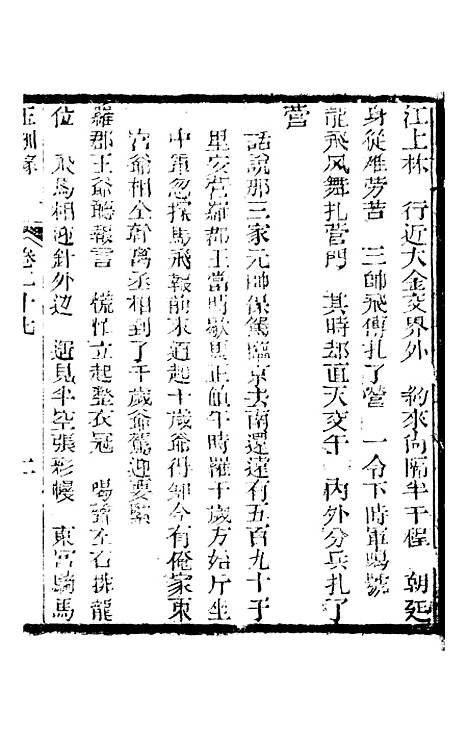 江上林　行近大金交界外　約來尚隔半千程　朝廷
身從雄勞苦　三帥飛傳扎了營　一令下時軍踢號
龍飛风舞扎营門　其時却直天交午　內外分兵扎了
营
話說那三家元帥保駕臨京去南還遠有五百九十子
里安营羅郡王當時歇馬正値午時羅千歲方始斤坐
中軍忽探馬飛報前來迺起千歲爺得知今有俺家東
宮爺相仝耶离丞相到了千歲爺駕迎要緊
羅郡王爺聽報言　慌忙立起整衣冠　喝聲左右排龍
位　飛馬相迎針外边　遥見半空張彩幔　東宮騎馬
卷二十七　二